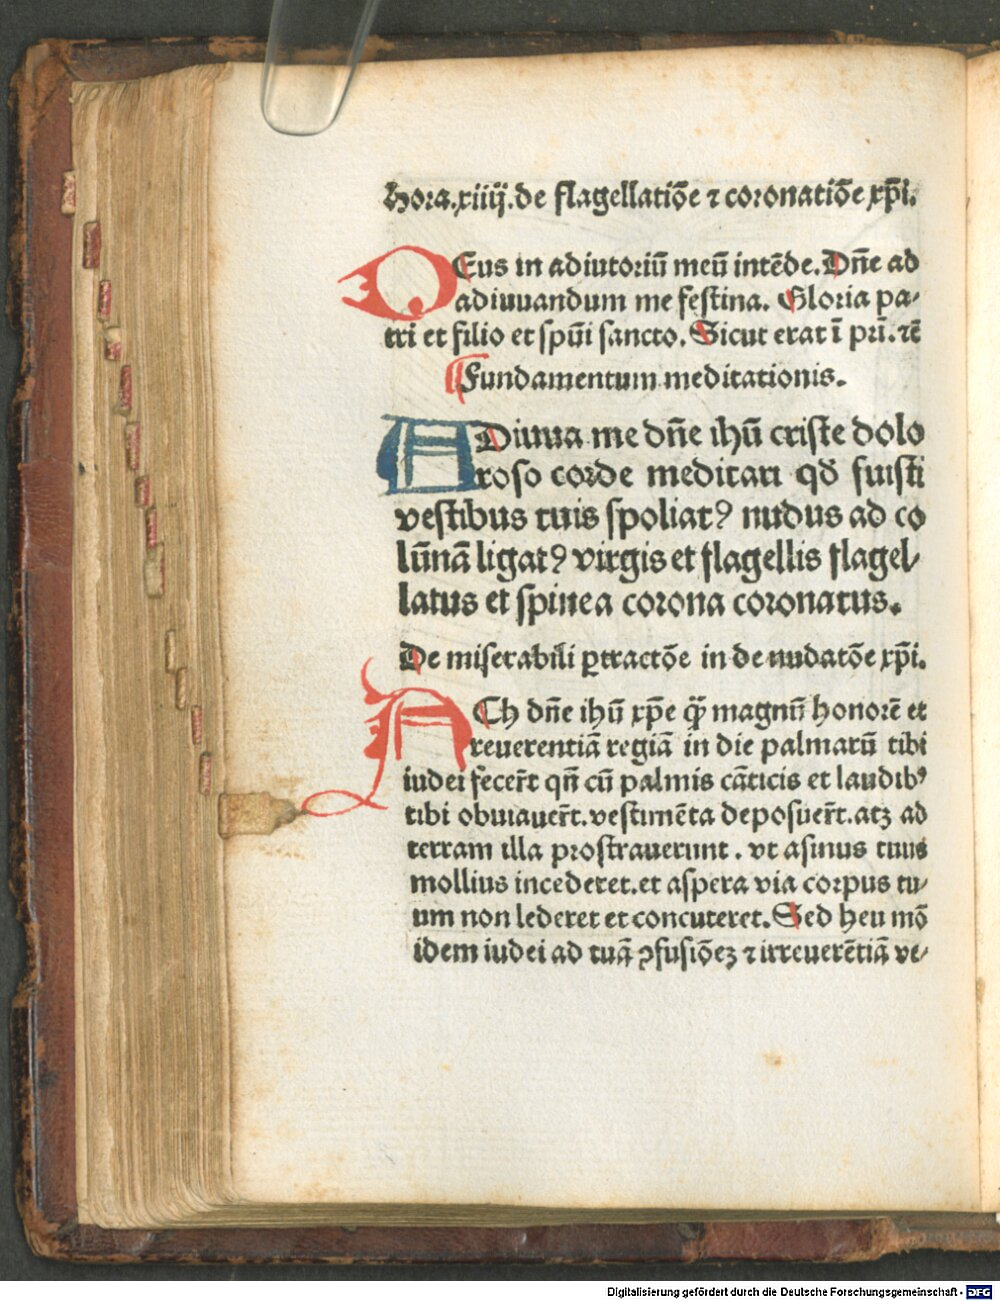 Hora.xiiij.de flagellatiōe ⁊ coronatiōe xp̄i.
DEus in adiutoriū meū intēde. Dn̄e ad
adiuuandum me festina. Gloria pa⸗
tri et filio et sp̄ui sancto. Sicut erat ī pri. ⁊c̄
¶ Fundamentum meditationis.
ADiuua me dn̄e ihū criste dolo
roso corde meditari qđ fuisti
vestibus tuis spoliatꝰ nudus ad co
lūnā ligatꝰ virgis et flagellis flagel⸗
latus et spinea corona coronatus.
De miserabili ꝑtractōe in de nudatōe xp̄i.
ACh dn̄e ihū xp̄e q̄ꝫ magnū honorē et
reuerentiā regiā in die palmarū tibi
iudei fecer̄t qn̄ cū palmis cāticis et laudibꝰ
tibi obuiauer̄t. vestimēta deposuer̄t. atꝫ ad
terram illa prostrauerunt. vt asinus tuus
mollius incederet. et aspera via corpus tu⸗
um non lederet et concuteret. Sed heu mō
idem iudei ad tuā ꝯfusiōeꝫ ⁊ irreuerētiā ve⸗
Digitalisierung gefördert durch die Deutsche Forschungsgemeinschaft - DFG